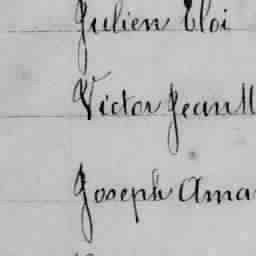 Julien Eloi
Victor Jean M
Joseph Ama